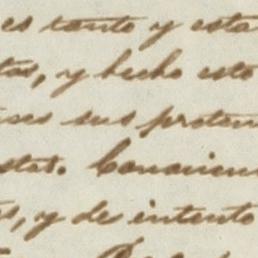 es tanto y esta
tas, y hecho esto
ises sus preten
stas. Convinien
s, y de intento